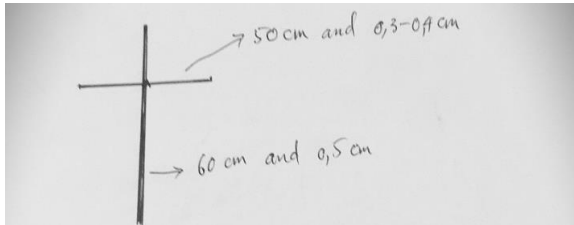 50 cm and 0,3-0,4 cm
60 cm and 0,5 cm